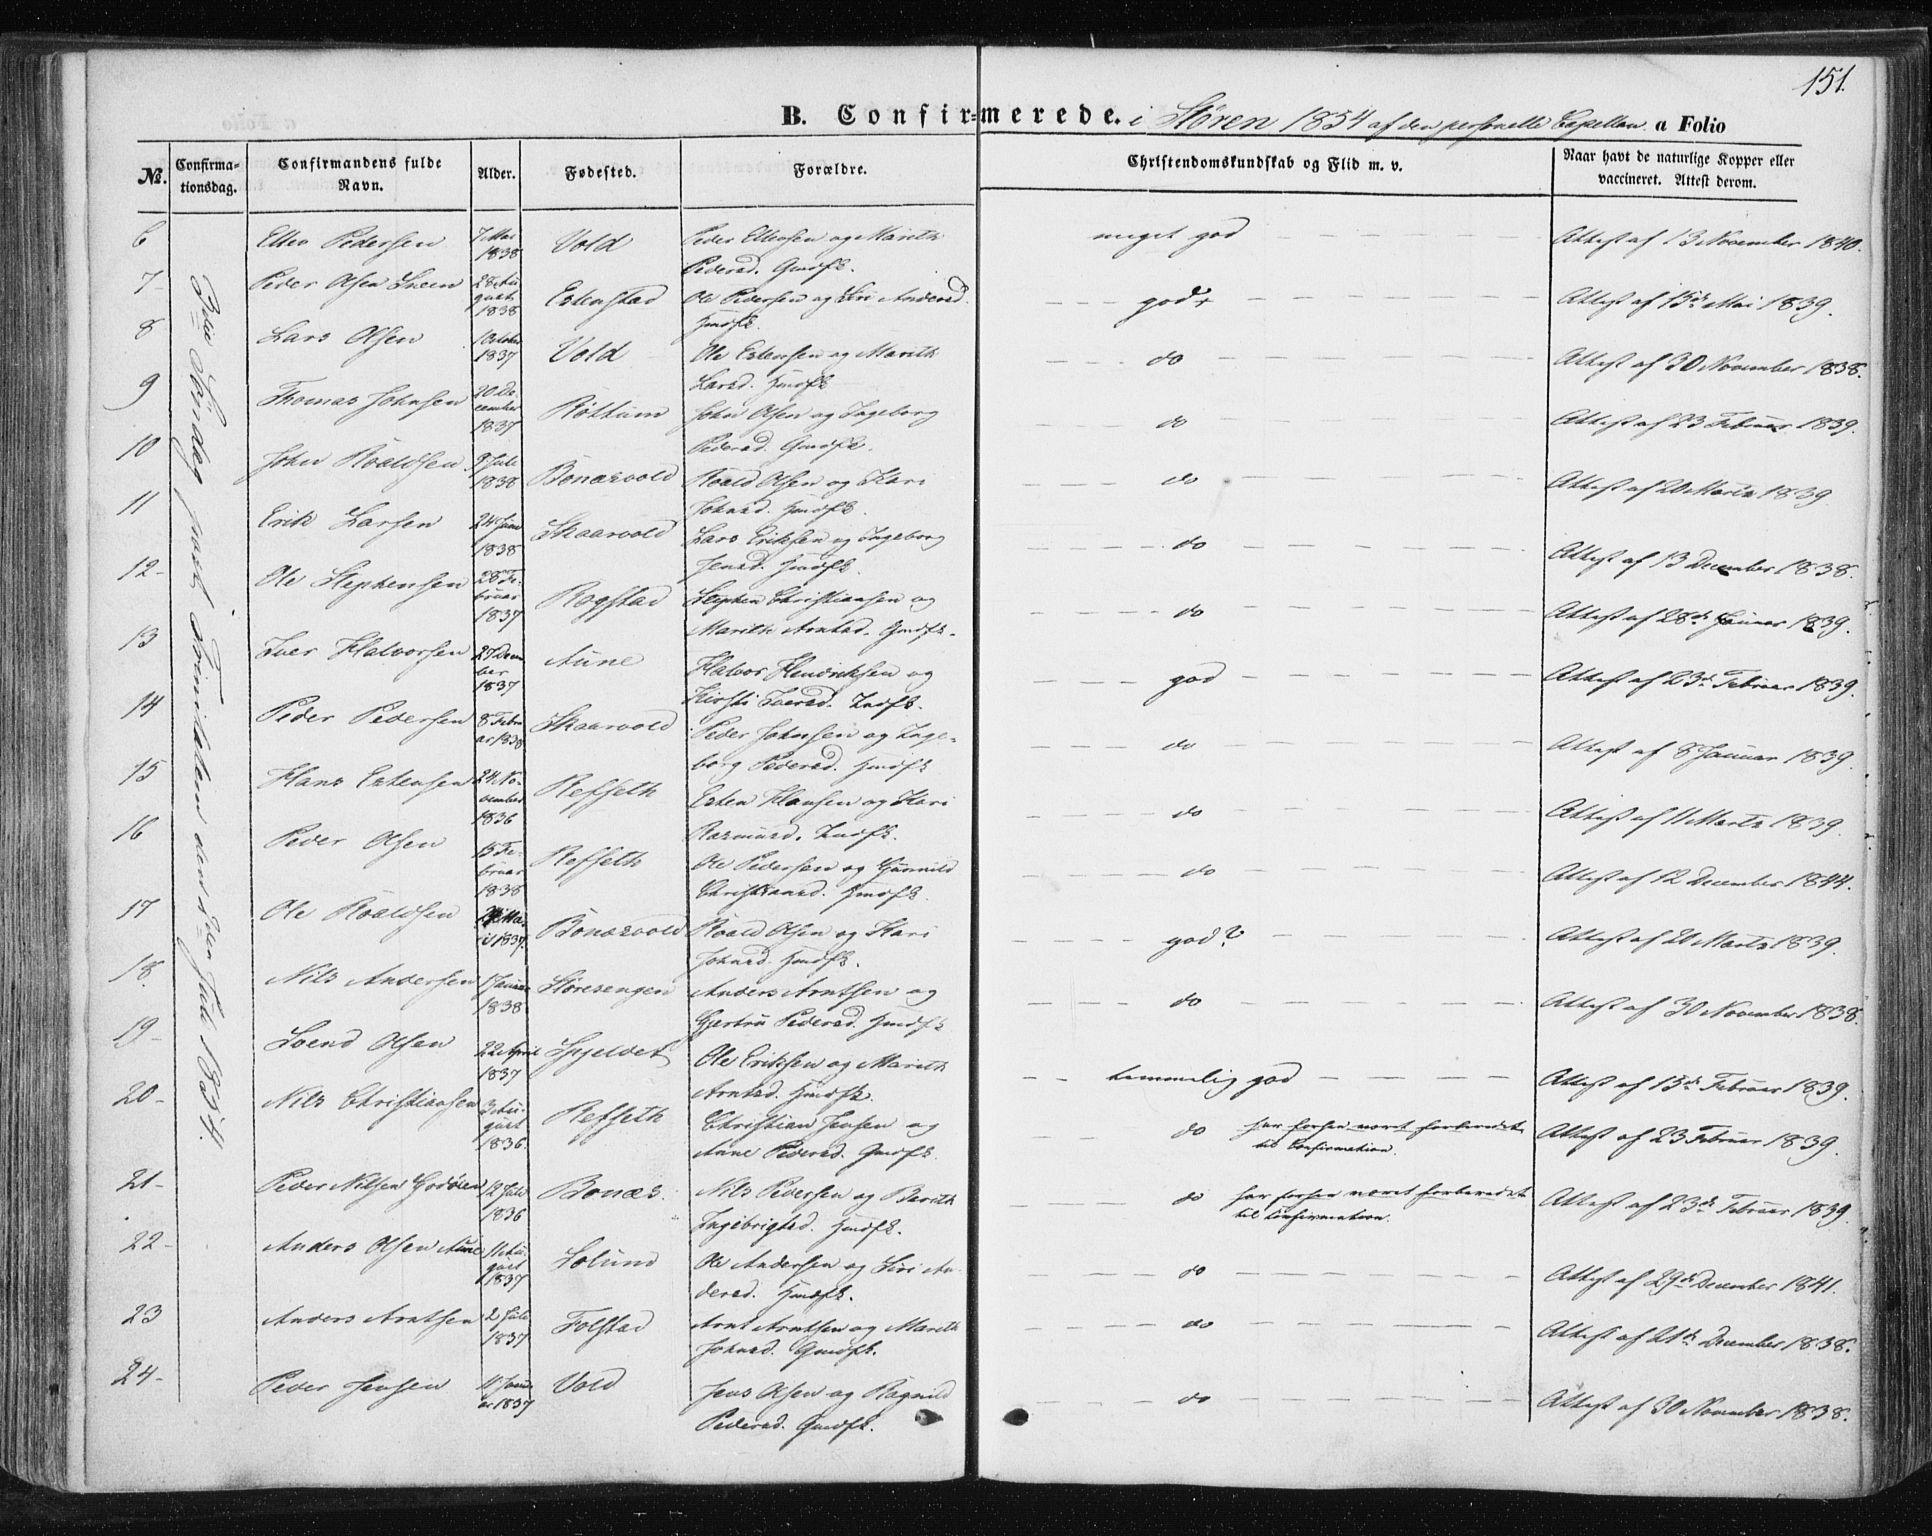 151.
B. Confirmerede. i Støren 1854 af den personelle Capellan a Folio
No. Confirma-tionsdag. Confirmandens fulde Navn. Alder. Fødested. Forældre. Christendomskundskab og Flid m. v. Naar havt de naturlige Kopper eller vaccineret. Attest derom.
Søndag post Trinitatis den Juli 1854.
6 Ellev Pedersen 7 Mai 1838 Vold Peder Ellevsen og Marith Pedersd. Gmdfk. meget god Attest af 13 November 1840.
7- Peder Olsen Sneen 28 August 1838 Estenstad Ole Pedersen og Siri Andersd. Hmdfk. god+ Attest af 15de Mai 1839.
8 Lars Olsen 1 October 1837 Vold Ole Estensen og Marith Larsd. Hmdfk do Attest af 30 November 1838.
9 Thomas Johnsen 20 December 1837 Røttum John Olsen og Ingeborg Pedersd. Gmdfk. do Attest af 23 Februar 1839.
10 John Roaldsen 9 Juli 1838 Bonæsvold Roald Olsen og Kari Johnsd. Hmdfk. do Attest af 20 Marts 1839
11 Erik Larsen 24 Juni 1838 Skaarvold Lars Eriksen og Ingeborg Jensd. Hmdfk. do Attest af 13 December 1838.
12- Ole Stephensen 28 Februar 1837 Rogstad Stephen Christiansen og Marith Arntsd. Gmdfk. do Attest af 28de Januar 1839.
13 Iver Halvorsen 27 December 1837 Aune Halvor Hendriksen og Kirsti Iversd. Indfk. god Attest af 23de Februar 1839.
14 Peder Pedersen 8 Februar 1838 Skaarvold Peder Johnsen og Ingeborg Pedersd. Hmdfk do Attest af 8 Januar 1839.
15 Hans Estensen 24 November 1836 Refseth Esten Hansen og Kari Rasmusd. Indfk. do Attest af 11 Marts 1839.
16 Peder Olsen 15 Februar 1838 Refseth Ole Pedersen og Gunnild Christiansd. Hmdfk. do Attest af 12 December 1844.
17 Ole Roaldsen 1837. Bonæsvold Roald Olsen og Kari Johnsd. Hmdfk. god? Attest af 20 Marts 1839
18. Nils Andersen 1 Januar 1838 Støresengen Anders Arntsen og Gjertru Pedersd. Hmdfk do Attest af 30 November 1838.
19- Svend Olsen 22 April 1837 Spjeldet Ole Eriksen og Marith Arntsd. Hmdfk. temmelig god Attest af 15de Februar 1839.
20- Nils Christiansen 3 August 1836 Refseth Christian Jensen og Anne Pedersd. Gmdfk. do har forhen været forberedet til Confirmation. Attest af 23 Februar 1839.
21- Peder Nilsen Godøien 12 Juli 1836 Bonæs. Nils Pedersen og Berith Ingebrigtsd. Hmdfk. do har forhen været forberedet til Confirmation. Attest af 23de Februar 1839.
22- Anders Olsen Aune 11 August 1837 Solund Ole Andersen og Siri Andersd. Hmdfk. do Attest af 29de December 1841.
23 Anders Arntsen 2 Juli 1837 Folstad Arnt Arntsen og Marith Johnsd. Gmdfk. do Attest af 21de December 1838.
24- Peder Jensen 11 Januar 1837 Vold Jens Olsen og Ragnild Pedersd. Gmdfk. do Attest af 30 November 1838.